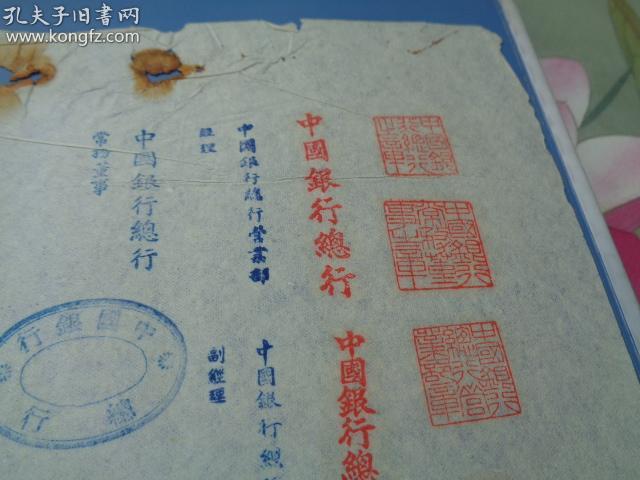 孔夫子旧书网
www.kongfz.com
中國銀行總行
中國銀行總行營業部
經理
中國銀行總行
常務董事
中國銀行總
中國銀行總
副經理
中國銀行
總行